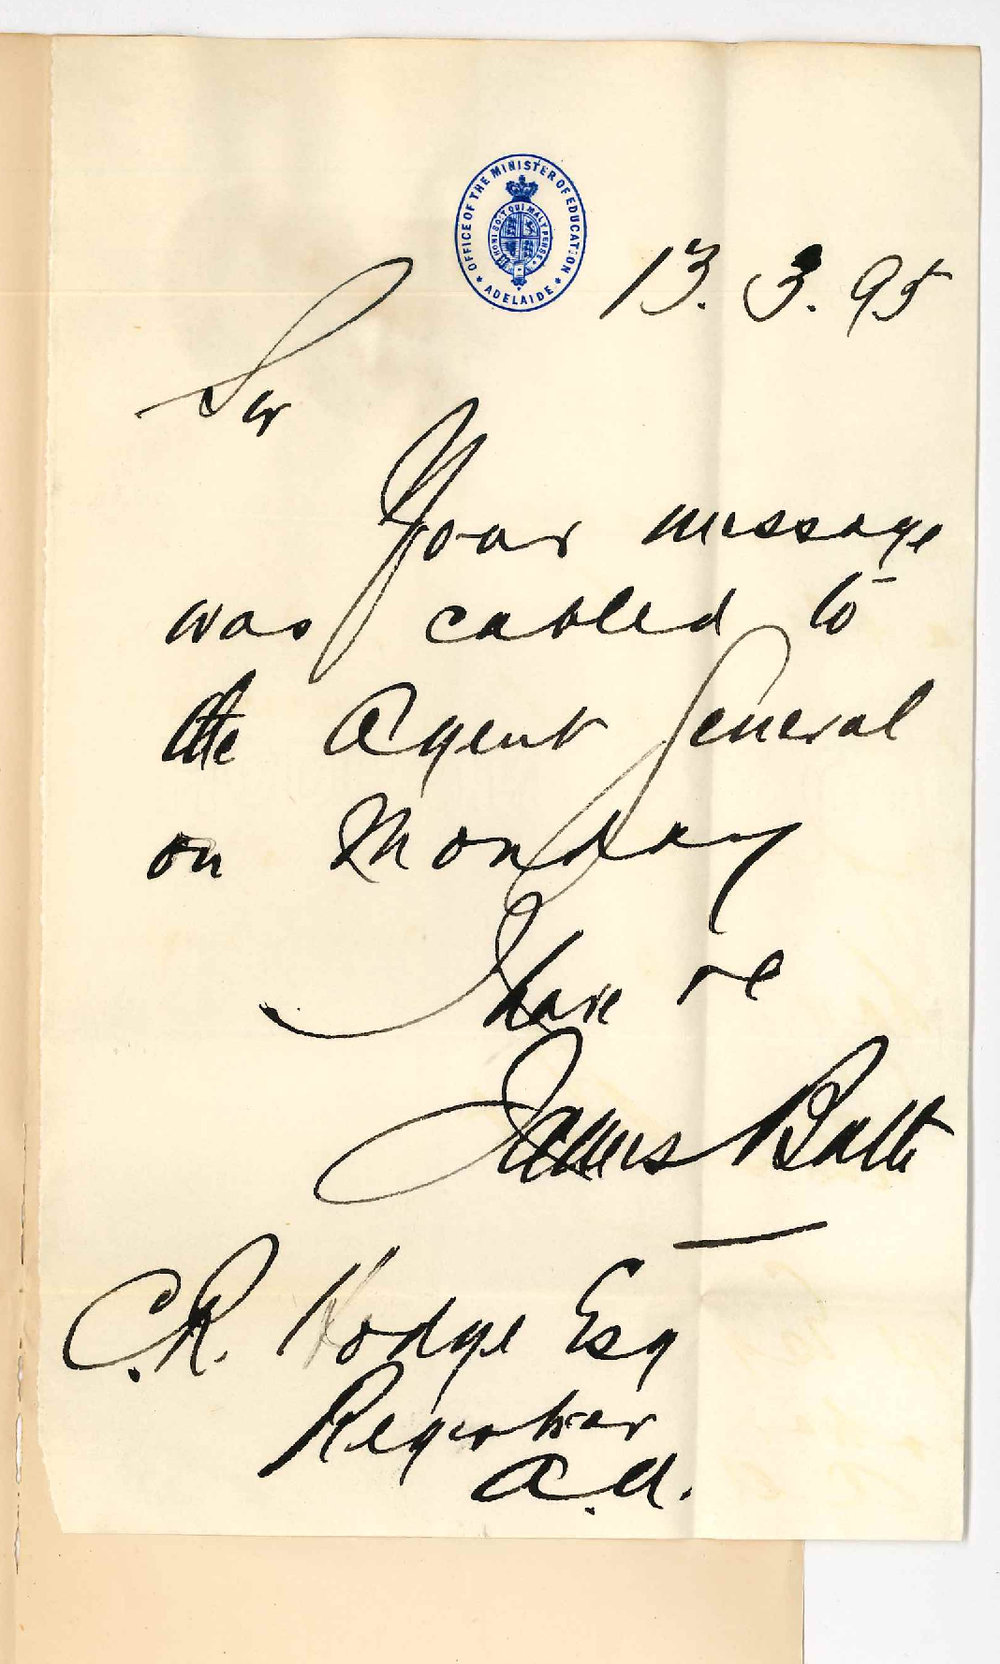 OFFICE OF THE MINISTER OF EDUCATION
ADELAIDE
HONI SOIT QUI MAL Y PENSE
13. 3. 95
Sir
Your message
was cabled to
the Agent General
on Monday
I have &c
James Batt
C.R. Hodge Esq
Registrar
A.U.